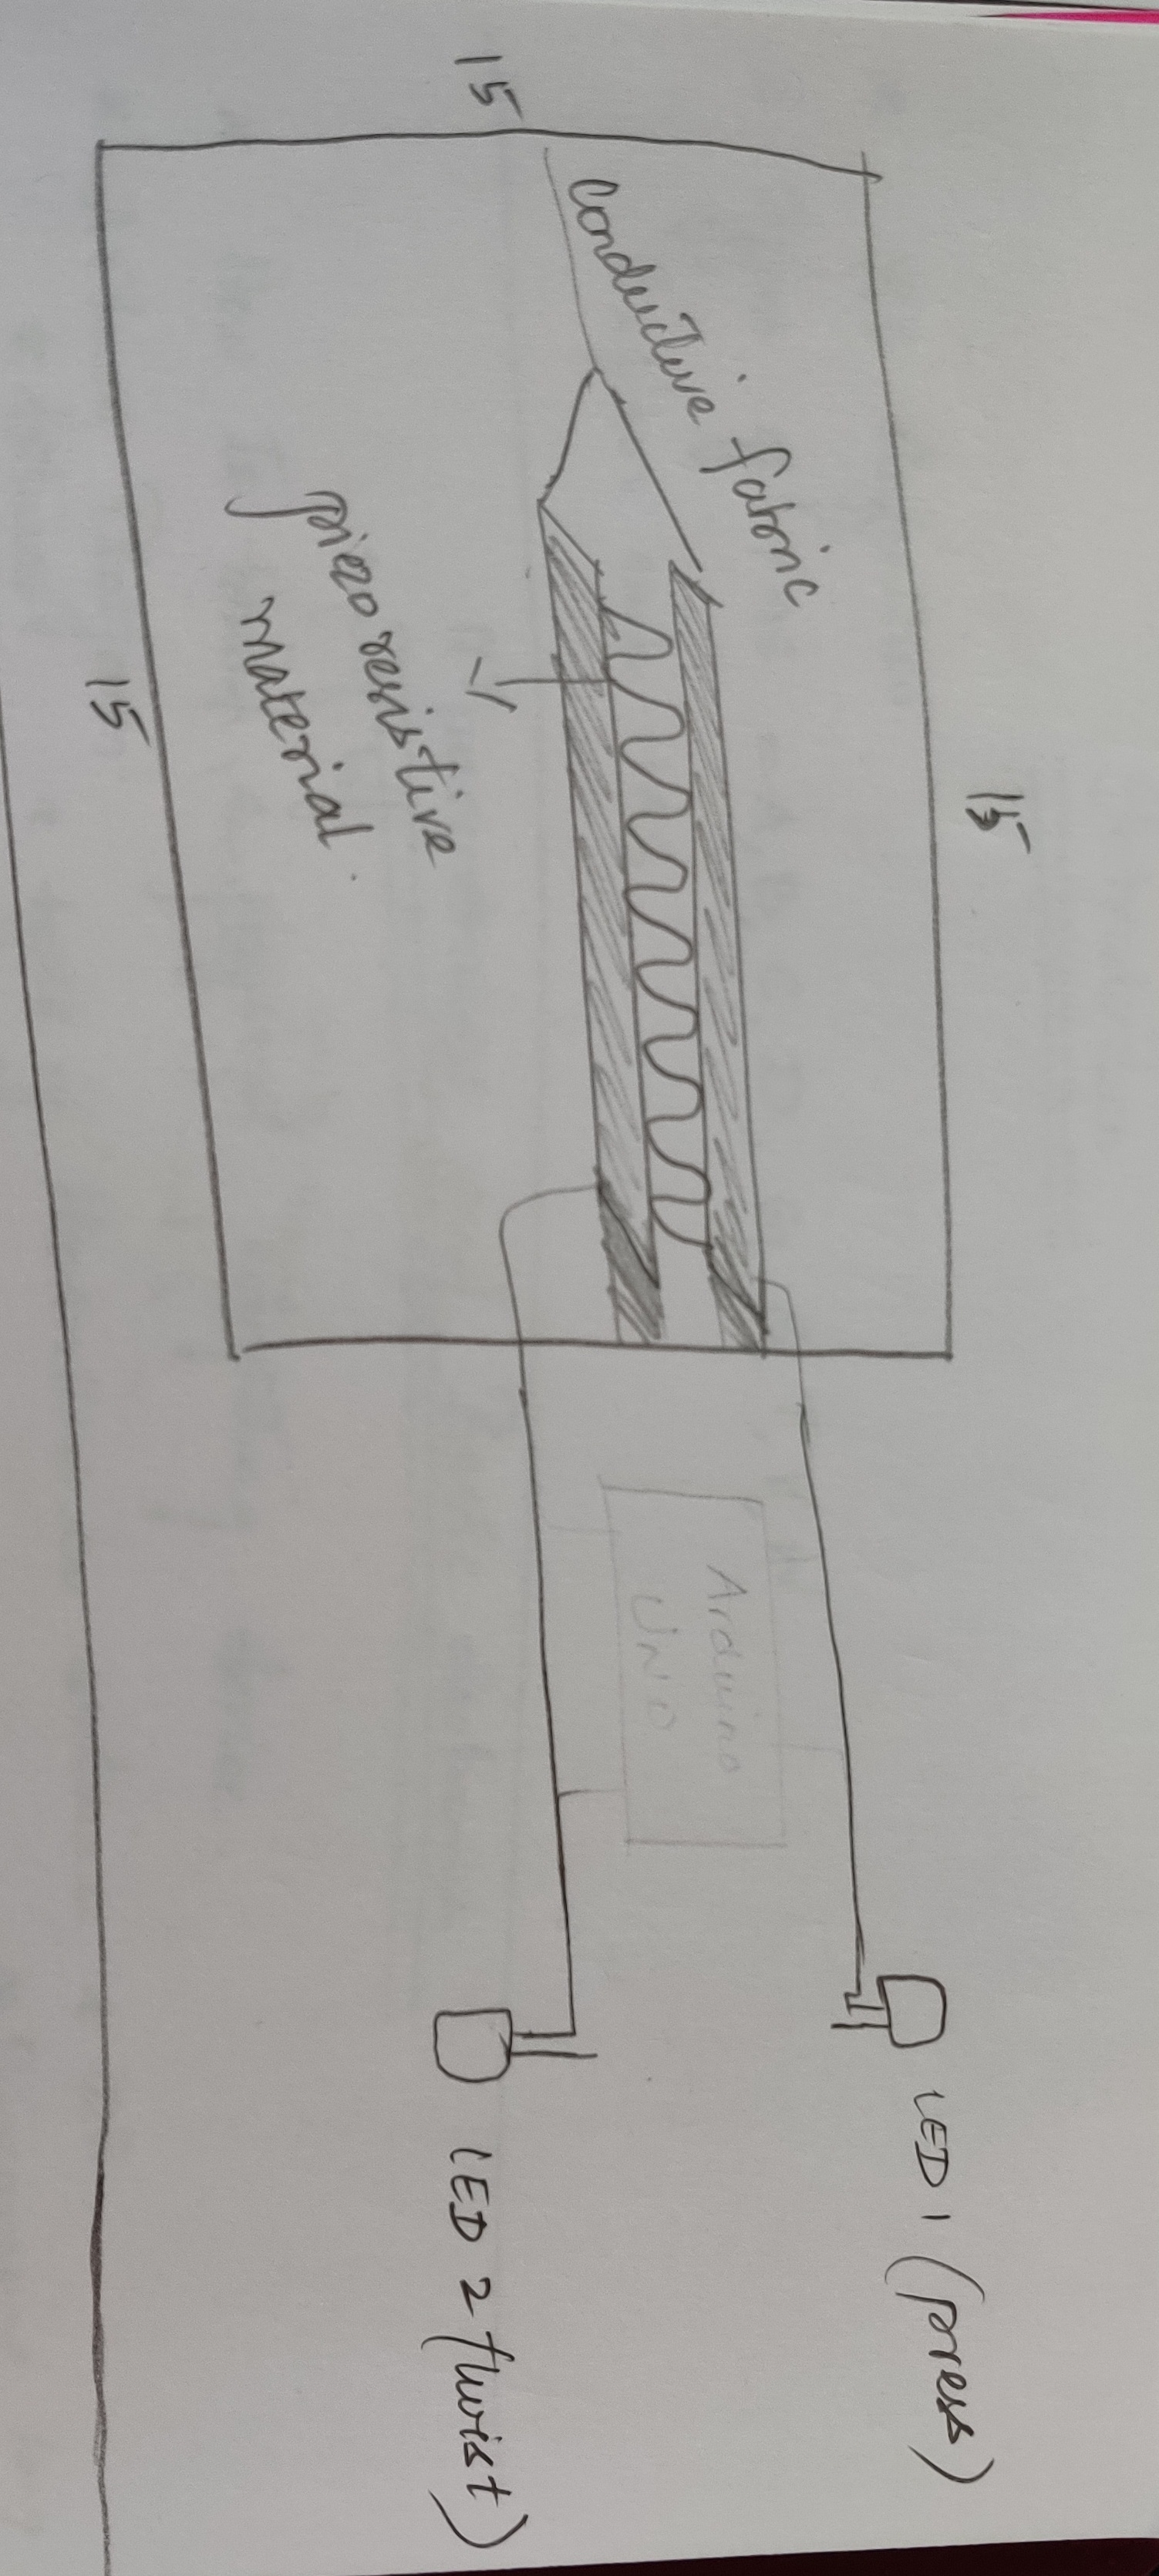 15
conductive fabric
15
piezo resistive
material.
15
Arduino
UNO
LED 1 (press)
LED 2 (twist)